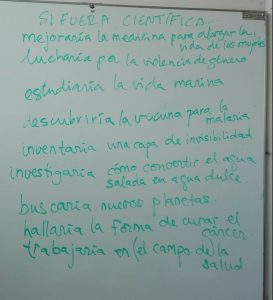 SI FUERA CIENTÍFICA...
mejoraría la medicina para alargar la
vida de las mujeres
lucharía por la violencia de género
estudiaría la vida marina
descubriría la vacuna para la
malaria
inventaría una capa de invisibilidad
investigaría cómo convertir el agua
salada en agua dulce
buscaría nuevos planetas
hallaría la forma de curar el
cáncer
trabajaría en (el campo de) la
salud